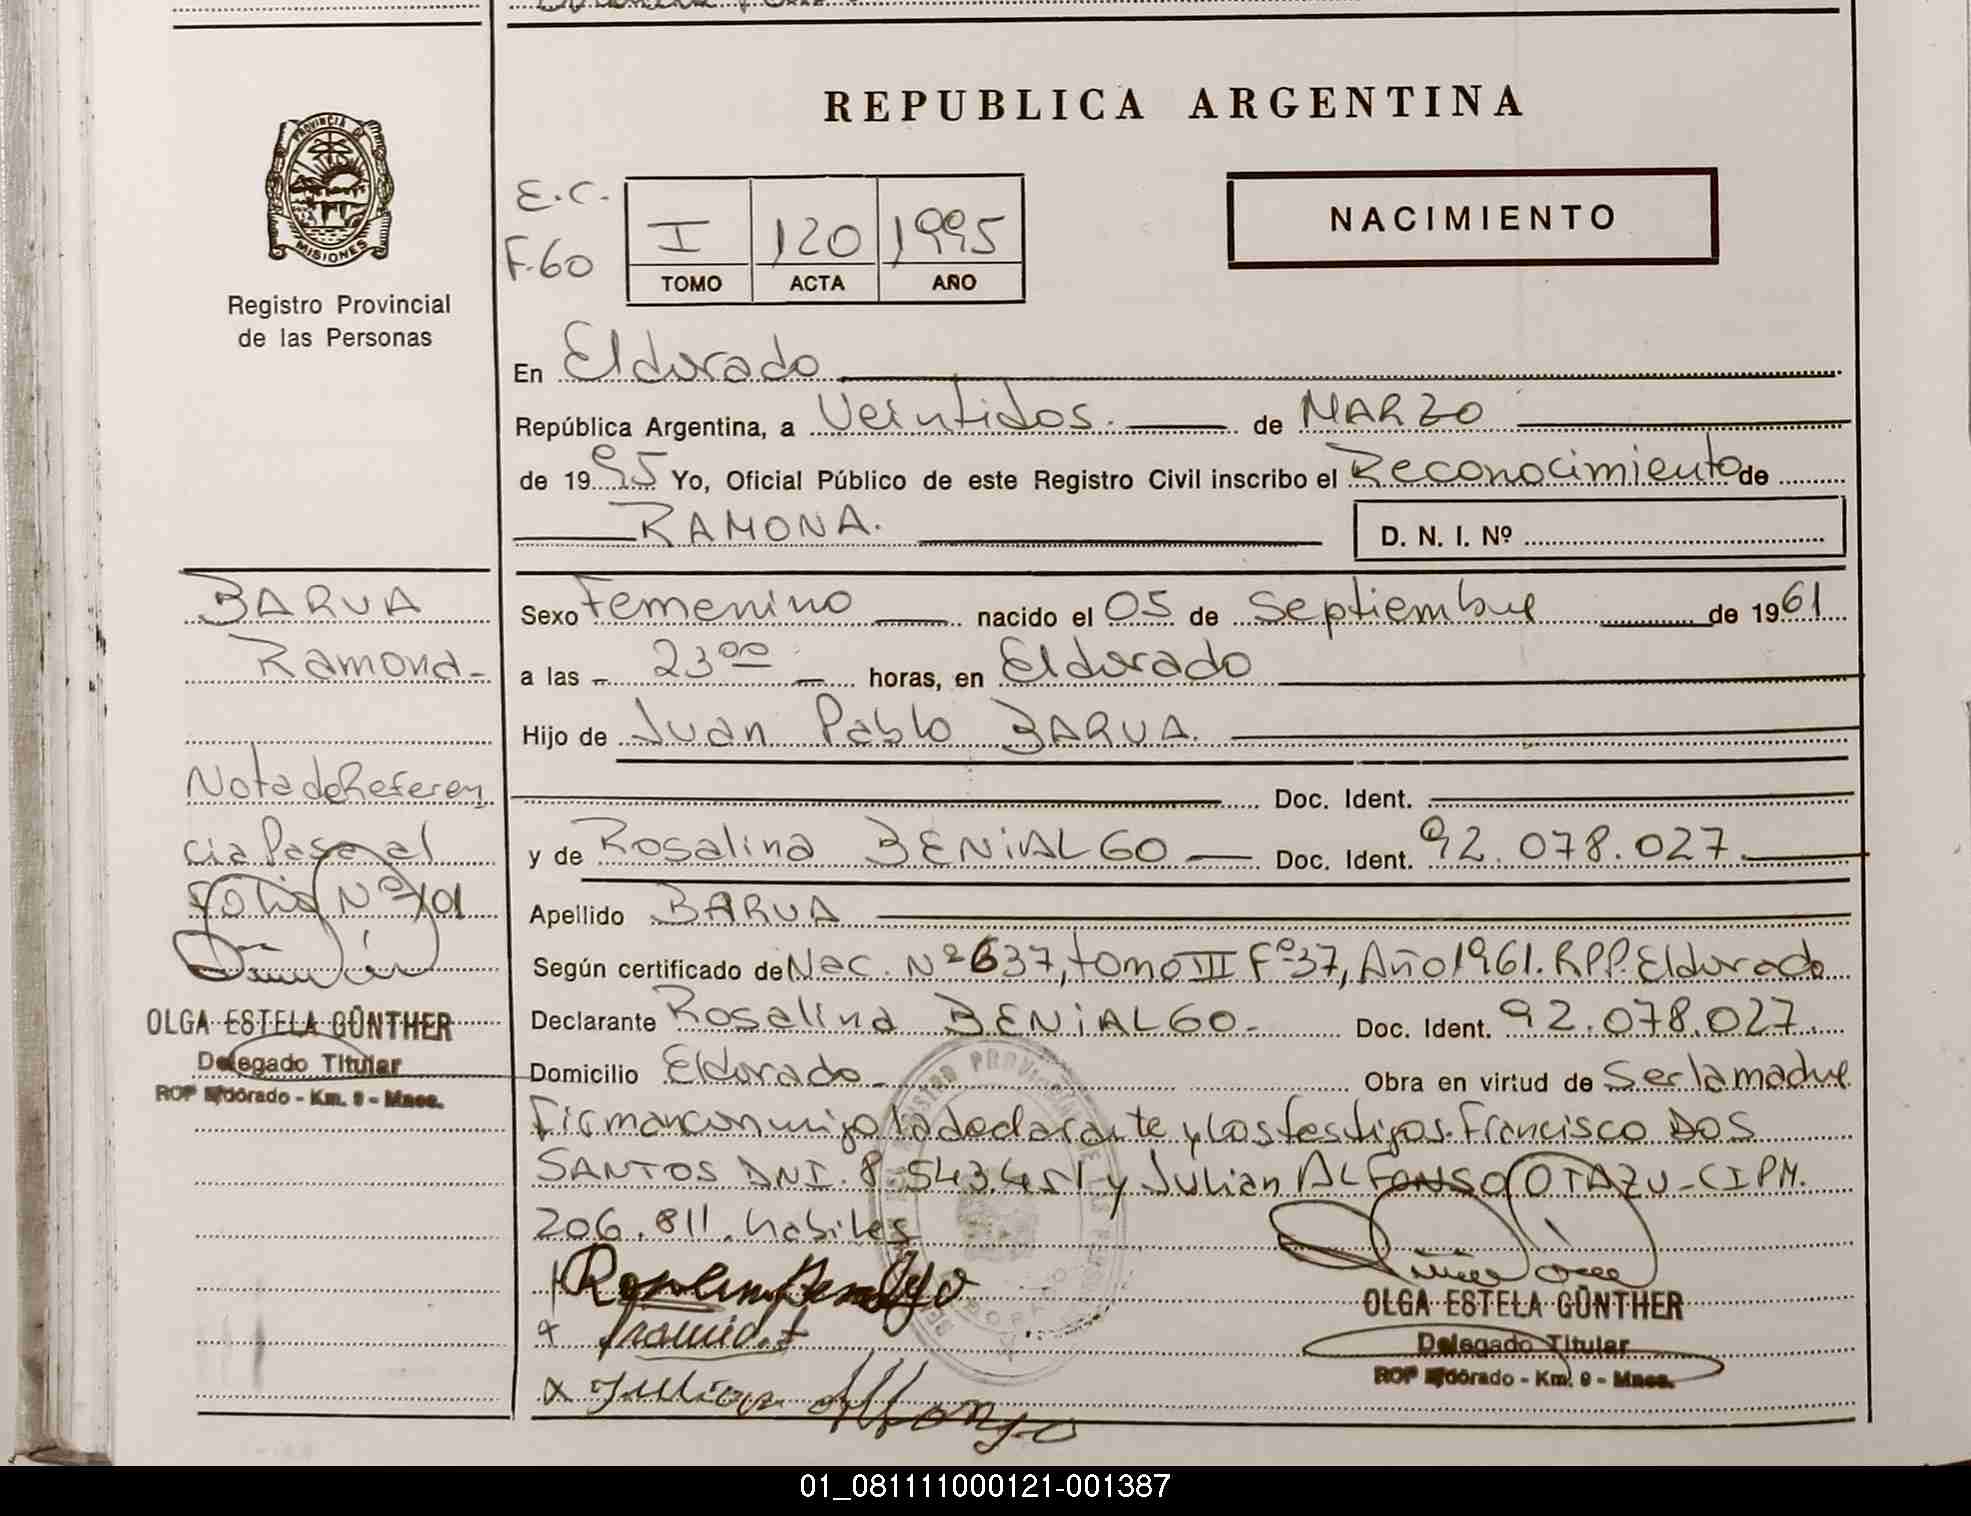 REPUBLICA ARGENTINA
PROVINCIA DE
MISIONES
Registro Provincial
de las Personas
E.C.
F.60
I 120 1995
TOMO ACTA AÑO
NACIMIENTO
En Eldorado
República Argentina, a Veintidos. de MARZO
de 1995 Yo, Oficial Público de este Registro Civil inscribo el Reconocimiento de
RAMONA.
D. N. I. Nº
BARUA
Ramona-
Sexo Femenino nacido el 05 de Septiembre de 1961
a las 23 00 horas, en Eldorado
Hijo de Juan Pablo BARUA.
Doc. Ident.
y de Rosalina BENiALGO Doc. Ident. 92.078.027
Apellido BARUA
Según certificado de Nac. Nº 637, tomo III Fº 37, Año 1961. RPP. Eldorado
Declarante Rosalina BENiALGO- Doc. Ident. 92.078.027.
Domicilio Eldorado- Obra en virtud de Ser la madre
Firman conmigo la declarante y los testigos. Francisco DOS
SANTOS DNI. 8.543.451 y Julian ALFONSO OTAZU-CIPM.
206.811. habiles
Nota de Referen
cia Pasa al
Folio Nº 101
OLGA ESTELA GÜNTHER
Delegado Titular
RCP Eldorado - Km. 9 - Mnes.
x
x Julian Alfonzo
OLGA ESTELA GÜNTHER
Delegado Titular
RCP Eldorado - Km. 9 - Mnes.
01_081111000121-001387